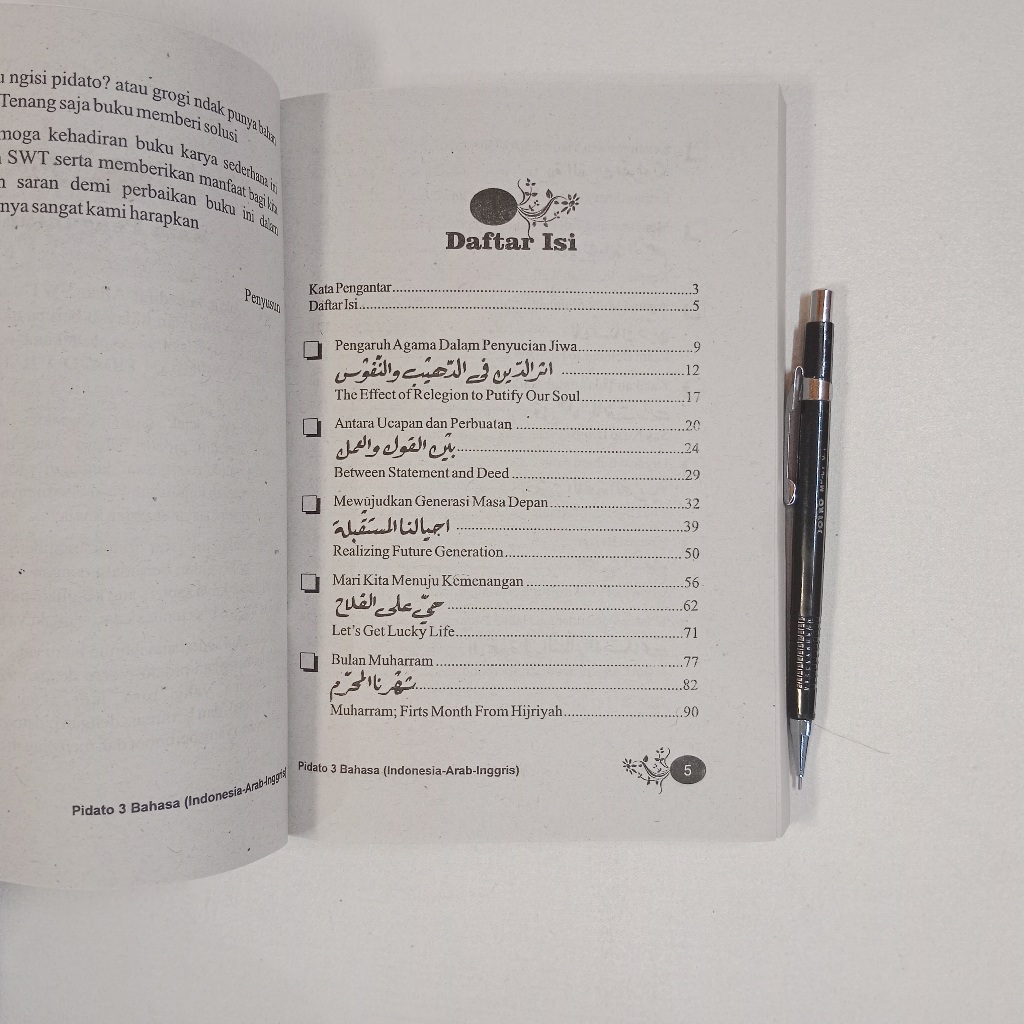 ngisi pidato? atau grogi ndak punya bahan
Tenang saja buku memberi solusi
moga kehadiran buku karya sederhana ini
SWT serta memberikan manfaat bagi kita
saran demi perbaikan buku ini dalam
nya sangat kami harapkan
Penyusun
Pidato 3 Bahasa (Indonesia-Arab-Inggris)
Daftar Isi
Kata Pengantar..........3
Daftar Isi..........5
Pengaruh Agama Dalam Penyucian Jiwa..........9
اثر الدّين فى التّهذيب والنّفوس ..........12
The Effect of Relegion to Putify Our Soul..........17
Antara Ucapan dan Perbuatan ..........20
بين القول والعمل..........24
Between Statement and Deed..........29
Mewujudkan Generasi Masa Depan..........32
اجيالنا المستقبلة ..........39
Realizing Future Generation..........50
Mari Kita Menuju Kemenangan ..........56
حيّ على الفلاح ..........62
Let's Get Lucky Life..........71
Bulan Muharram ..........77
شهرنا المحرّم..........82
Muharram; Firts Month From Hijriyah..........90
Pidato 3 Bahasa (Indonesia-Arab-Inggris)
5
JOYKO